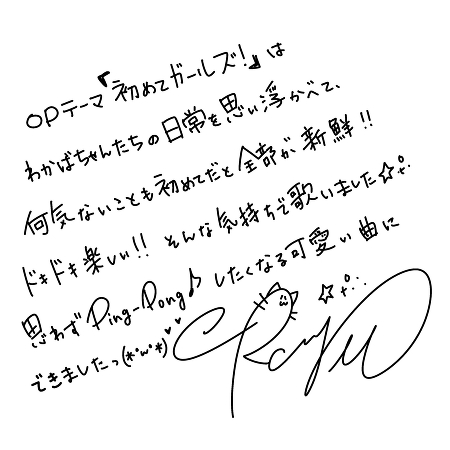 OPテーマ『初めてガールズ!』は
わかばちゃんたちの日常を思い浮かべて、
何気ないことも初めてだと全部が新鮮!!
ドキドキ楽しい!! そんな気持ちで歌いました☆
思わずPing-Pong♪したくなる可愛い曲に
できましたっ(*°ω°*)♥♥
Ray